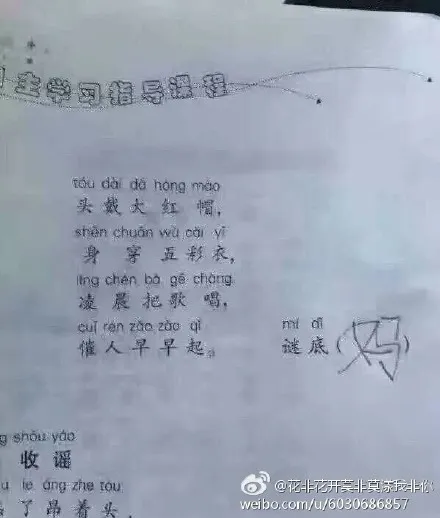 主学习指导课程
tóu dài dà hóng mào
头戴大红帽，
shēn chuān wǔ cǎi yī
身穿五彩衣，
líng chén bǎ gē chàng
凌晨把歌唱，
cuī rén zǎo zǎo qǐ
催人早早起。
mí dǐ
谜底（妈）
shōu yáo
收谣
le áng zhe tóu
了昂着头，
@花非花开莫非莫
weibo.com/u/6030686857